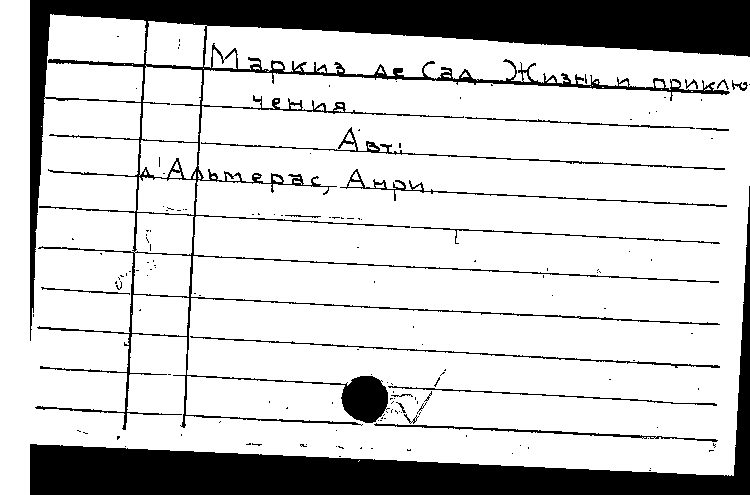 Маркиз де Сад. Жизнь и приклю-
чения.
Авт.:
д'Альмерас, Анри.